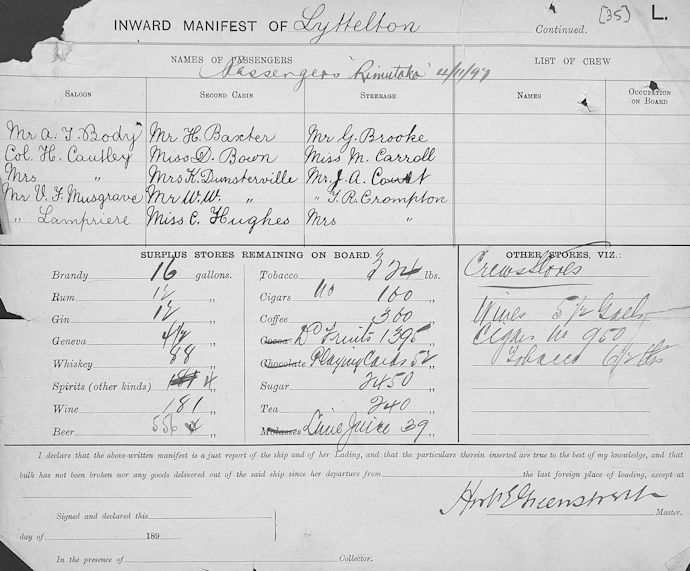 INWARD MANIFEST OF Lyttelton Continued. [35] L.
NAMES OF PASSENGERS LIST OF CREW
Passengers "Rimutaka" 4/11/97
SALOON SECOND CABIN STEERAGE NAMES OCCUPATION ON BOARD
Mr A. J. Body Mr H. Baxter Mr G. Brooke
Col. H. Cautley Miss D. Bown Miss M. Carroll
Mrs " Mrs K. Dunsterville Mr J. A. Court
Mr V. F. Musgrave Mr W. W. " " T. R. Crompton
" Lampriere Miss C. Hughes Mrs "
SURPLUS STORES REMAINING ON BOARD. OTHER STORES, VIZ.:
Brandy 16 gallons. Tobacco lbs. Crews Stores
Rum 1½ " Cigars No 100 "
Gin 1½ " Coffee 300 " Wines 5½ Galls
Geneva 4½ " Cocoa Do Fruits 1395 " Cigars No 950
Whiskey 88 " Chocolate Playing Cards 52 " Tobacco 6½ lbs
Spirits (other kinds) 181 4 " Sugar 2450 "
Wine 181 " Tea 240 "
Beer 556 " Molasses Lime Juice 39 "
I declare that the above-written manifest is a just report of the ship and of her Lading, and that the particulars therein inserted are true to the best of my knowledge, and that
bulk has not been broken nor any goods delivered out of the said ship since her departure from the last foreign place of loading, except at
Signed and declared this Master.
day of 189
In the presence of Collector.